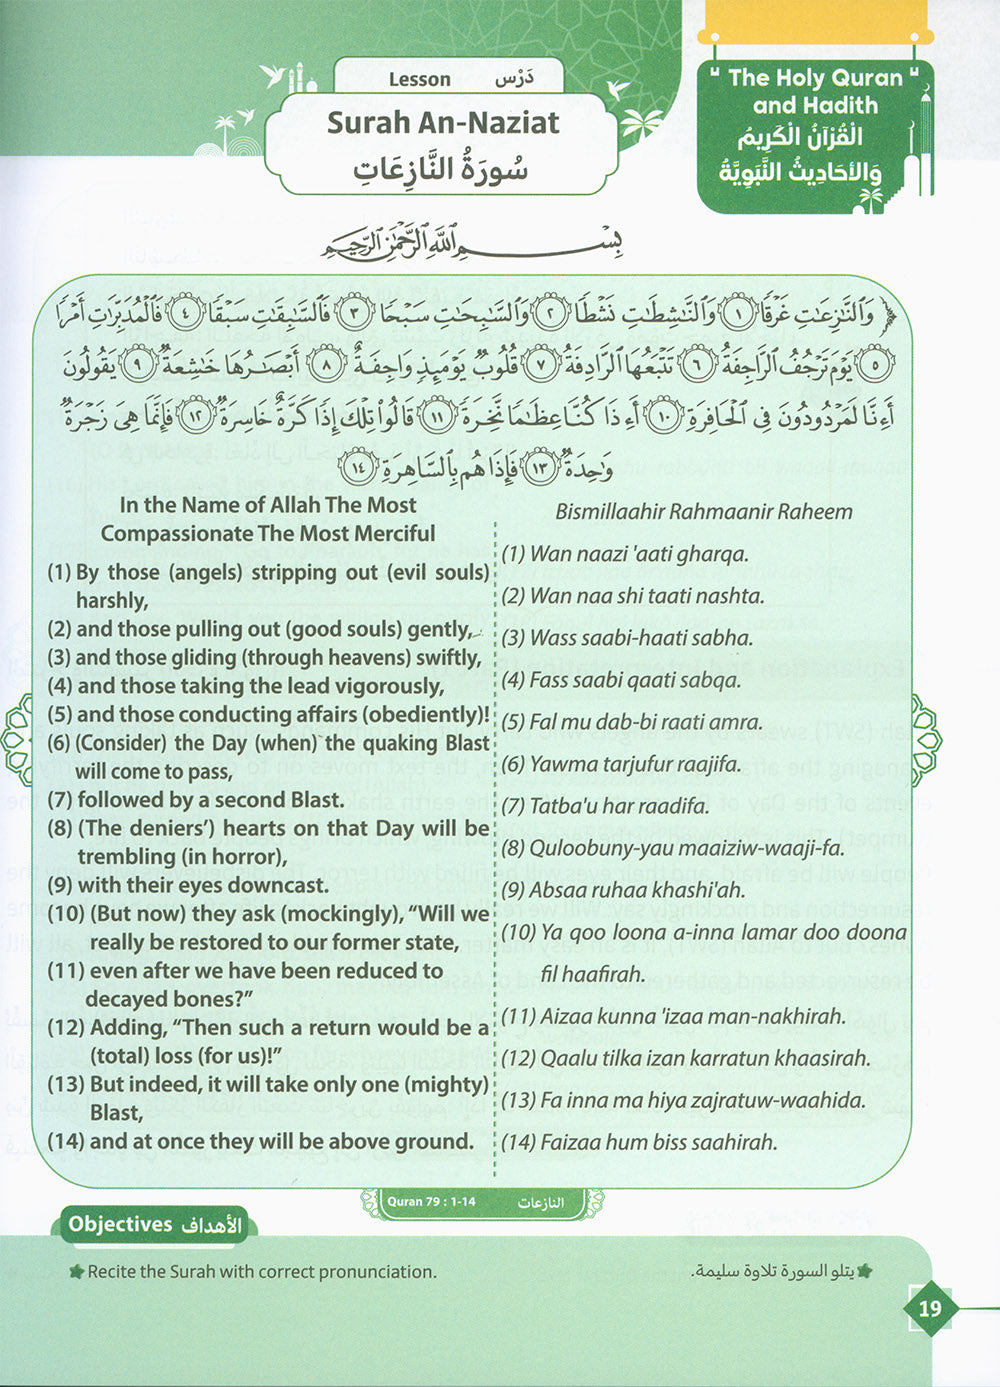 Lesson دَرْس
Surah An-Naziat
سُورَةُ النَّازِعَاتِ
" The Holy Quran "
and Hadith
الْقُرْآنُ الْكَرِيمُ
وَالأحَادِيثُ النَّبَوِيَّةُ
بِسْمِ اللَّهِ الرَّحْمَٰنِ الرَّحِيمِ
﴿ وَٱلنَّٰزِعَٰتِ غَرْقًا ١ وَٱلنَّٰشِطَٰتِ نَشْطًا ٢ وَٱلسَّٰبِحَٰتِ سَبْحًا ٣ فَٱلسَّٰبِقَٰتِ سَبْقًا ٤ فَٱلْمُدَبِّرَٰتِ أَمْرًا
٥ يَوْمَ تَرْجُفُ ٱلرَّاجِفَةُ ٦ تَتْبَعُهَا ٱلرَّادِفَةُ ٧ قُلُوبٌ يَوْمَئِذٍ وَاجِفَةٌ ٨ أَبْصَٰرُهَا خَٰشِعَةٌ ٩ يَقُولُونَ
أَءِنَّا لَمَرْدُودُونَ فِي ٱلْحَافِرَةِ ١٠ أَءِذَا كُنَّا عِظَٰمًا نَّخِرَةً ١١ قَالُوا۟ تِلْكَ إِذًا كَرَّةٌ خَاسِرَةٌ ١٢ فَإِنَّمَا هِىَ زَجْرَةٌ
وَٰحِدَةٌ ١٣ فَإِذَا هُم بِٱلسَّاهِرَةِ ١٤
In the Name of Allah The Most
Compassionate The Most Merciful
(1) By those (angels) stripping out (evil souls)
harshly,
(2) and those pulling out (good souls) gently,
(3) and those gliding (through heavens) swiftly,
(4) and those taking the lead vigorously,
(5) and those conducting affairs (obediently)!
(6) (Consider) the Day (when) the quaking Blast
will come to pass,
(7) followed by a second Blast.
(8) (The deniers') hearts on that Day will be
trembling (in horror),
(9) with their eyes downcast.
(10) (But now) they ask (mockingly), “Will we
really be restored to our former state,
(11) even after we have been reduced to
decayed bones?”
(12) Adding, “Then such a return would be a
(total) loss (for us)!”
(13) But indeed, it will take only one (mighty)
Blast,
(14) and at once they will be above ground.
Bismillaahir Rahmaanir Raheem
(1) Wan naazi 'aati gharqa.
(2) Wan naa shi taati nashta.
(3) Wass saabi-haati sabha.
(4) Fass saabi qaati sabqa.
(5) Fal mu dab-bi raati amra.
(6) Yawma tarjufur raajifa.
(7) Tatba'u har raadifa.
(8) Quloobuny-yau maaiziw-waaji-fa.
(9) Absaa ruhaa khashi'ah.
(10) Ya qoo loona a-inna lamar doo doona
fil haafirah.
(11) Aizaa kunna 'izaa man-nakhirah.
(12) Qaalu tilka izan karratun khaasirah.
(13) Fa inna ma hiya zajratuw-waahida.
(14) Faizaa hum biss saahirah.
Quran 79 : 1-14 النازعات
Objectives الأهداف
Recite the Surah with correct pronunciation.
يتلو السورة تلاوة سليمة.
19